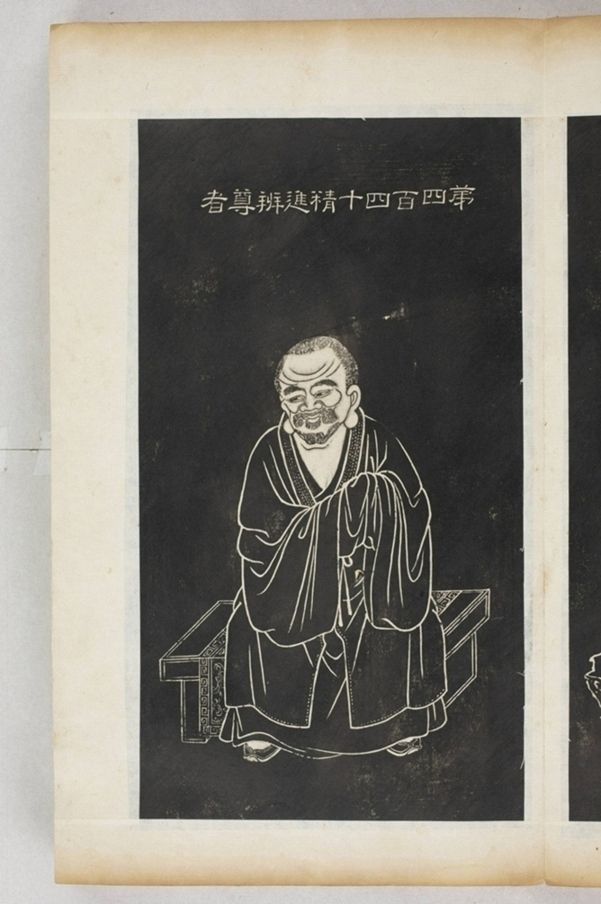 苐四百四十精進辨尊者